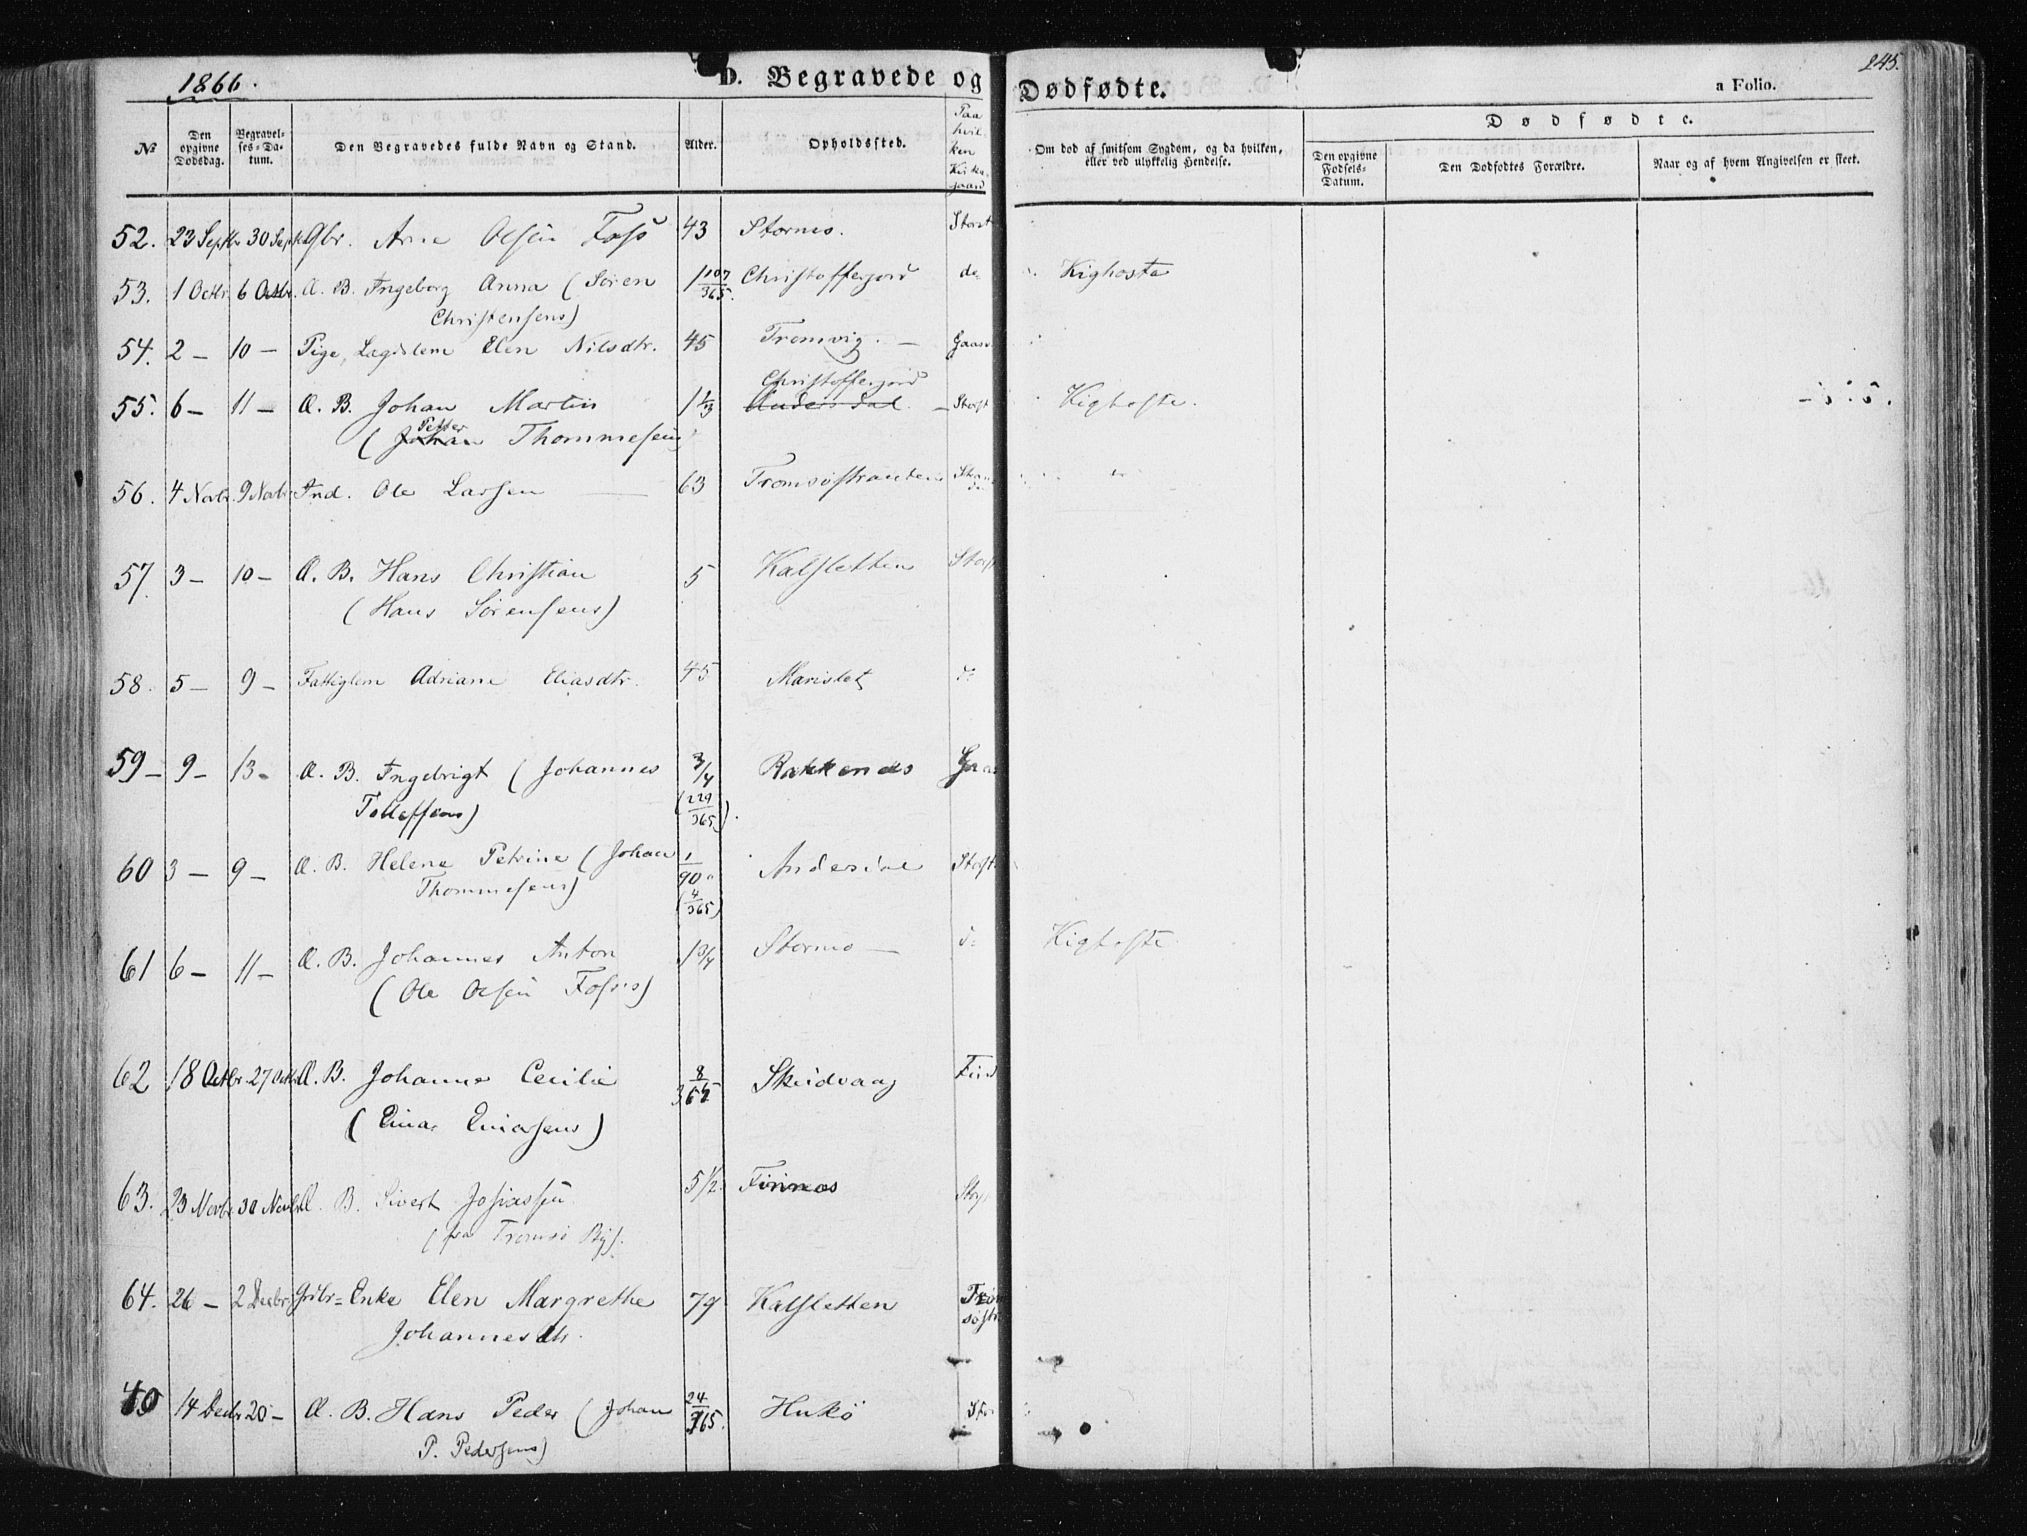 1866.
D. Begravede og Dødfødte.
245.
a Folio.
№
Den opgivne Dødsdag.
Begravelses-Datum.
Den Begravedes fulde Navn og Stand.
Alder.
Opholdssted.
Paa hvilken Kirkegaard
Om død af smitsom Sygdom, og da hvilken, eller ved ulykkelig Hendelse.
Dødfødte.
Den opgivne Fødsels-Datum.
Den Dødfødtes Forældre.
Naar og af hvem Angivelsen er skeet.
52. 23 Septbr 30 Sept Gbr. Arne Olsen Foss 43 Stornes. Storst
53. 1 Octbr. 6 Octbr. Æ. B. Ingeborg Anna (Sören 1 107/365. Christofferjord do Kighoste
Christensens)
54. 2 — 10 — Pige, Lægdslem Elen Nilsdtr. 45 Tromvig. — Gaas
Christofferjord
55. 6 — 11 — Æ. B. Johan Martin 1 1/3 Andersdal. — Storst Kighoste.
Petter
(Johan Thommesens)
56. 4 Novbr. 9 Novbr. Ind. Ole Larsen — 63 Tromsöstranden
57. 3 — 10 — Æ. B. Hans Christian 5 Kalsletten Storst
(Hans Sörensens)
58. 5 — 9 — Fattiglem Adriane Eliasdtr. 45 Marislet do
59 — 9 — 13 — Æ. B. Ingebrigt (Johannes 3/4 Rakkenes Gaa
Tollefsens) (229/365).
60 3 — 9 — Æ. B. Helene Petrine (Johan 1/90 Andersdal Storst
Thommesens) (4/365)
61 6 — 11 — Æ. B. Johannes Anton 1 3/4 Stormo — do Kighoste.
(Ole Olsen Foss's)
62 18 Octbr. 27 Octbr. Æ. B. Johanne Cecilie 8/365 Skeidvaag
(Einar Einarsens)
63. 23 Novbr. 30 Novbr. Æ. B. Sivert Josiassen 5 1/2. Finnes
(fra Tromsö By).
64. 26 — 2 Decbr. Grbr = Enke Elen Margrethe 79 Kalsletten Trom
Johannesdtr. söstr
14 Decbr 20 — Æ. B. Hans Peder (Johan 24/365. Hukö Stor
P. Pedersens)